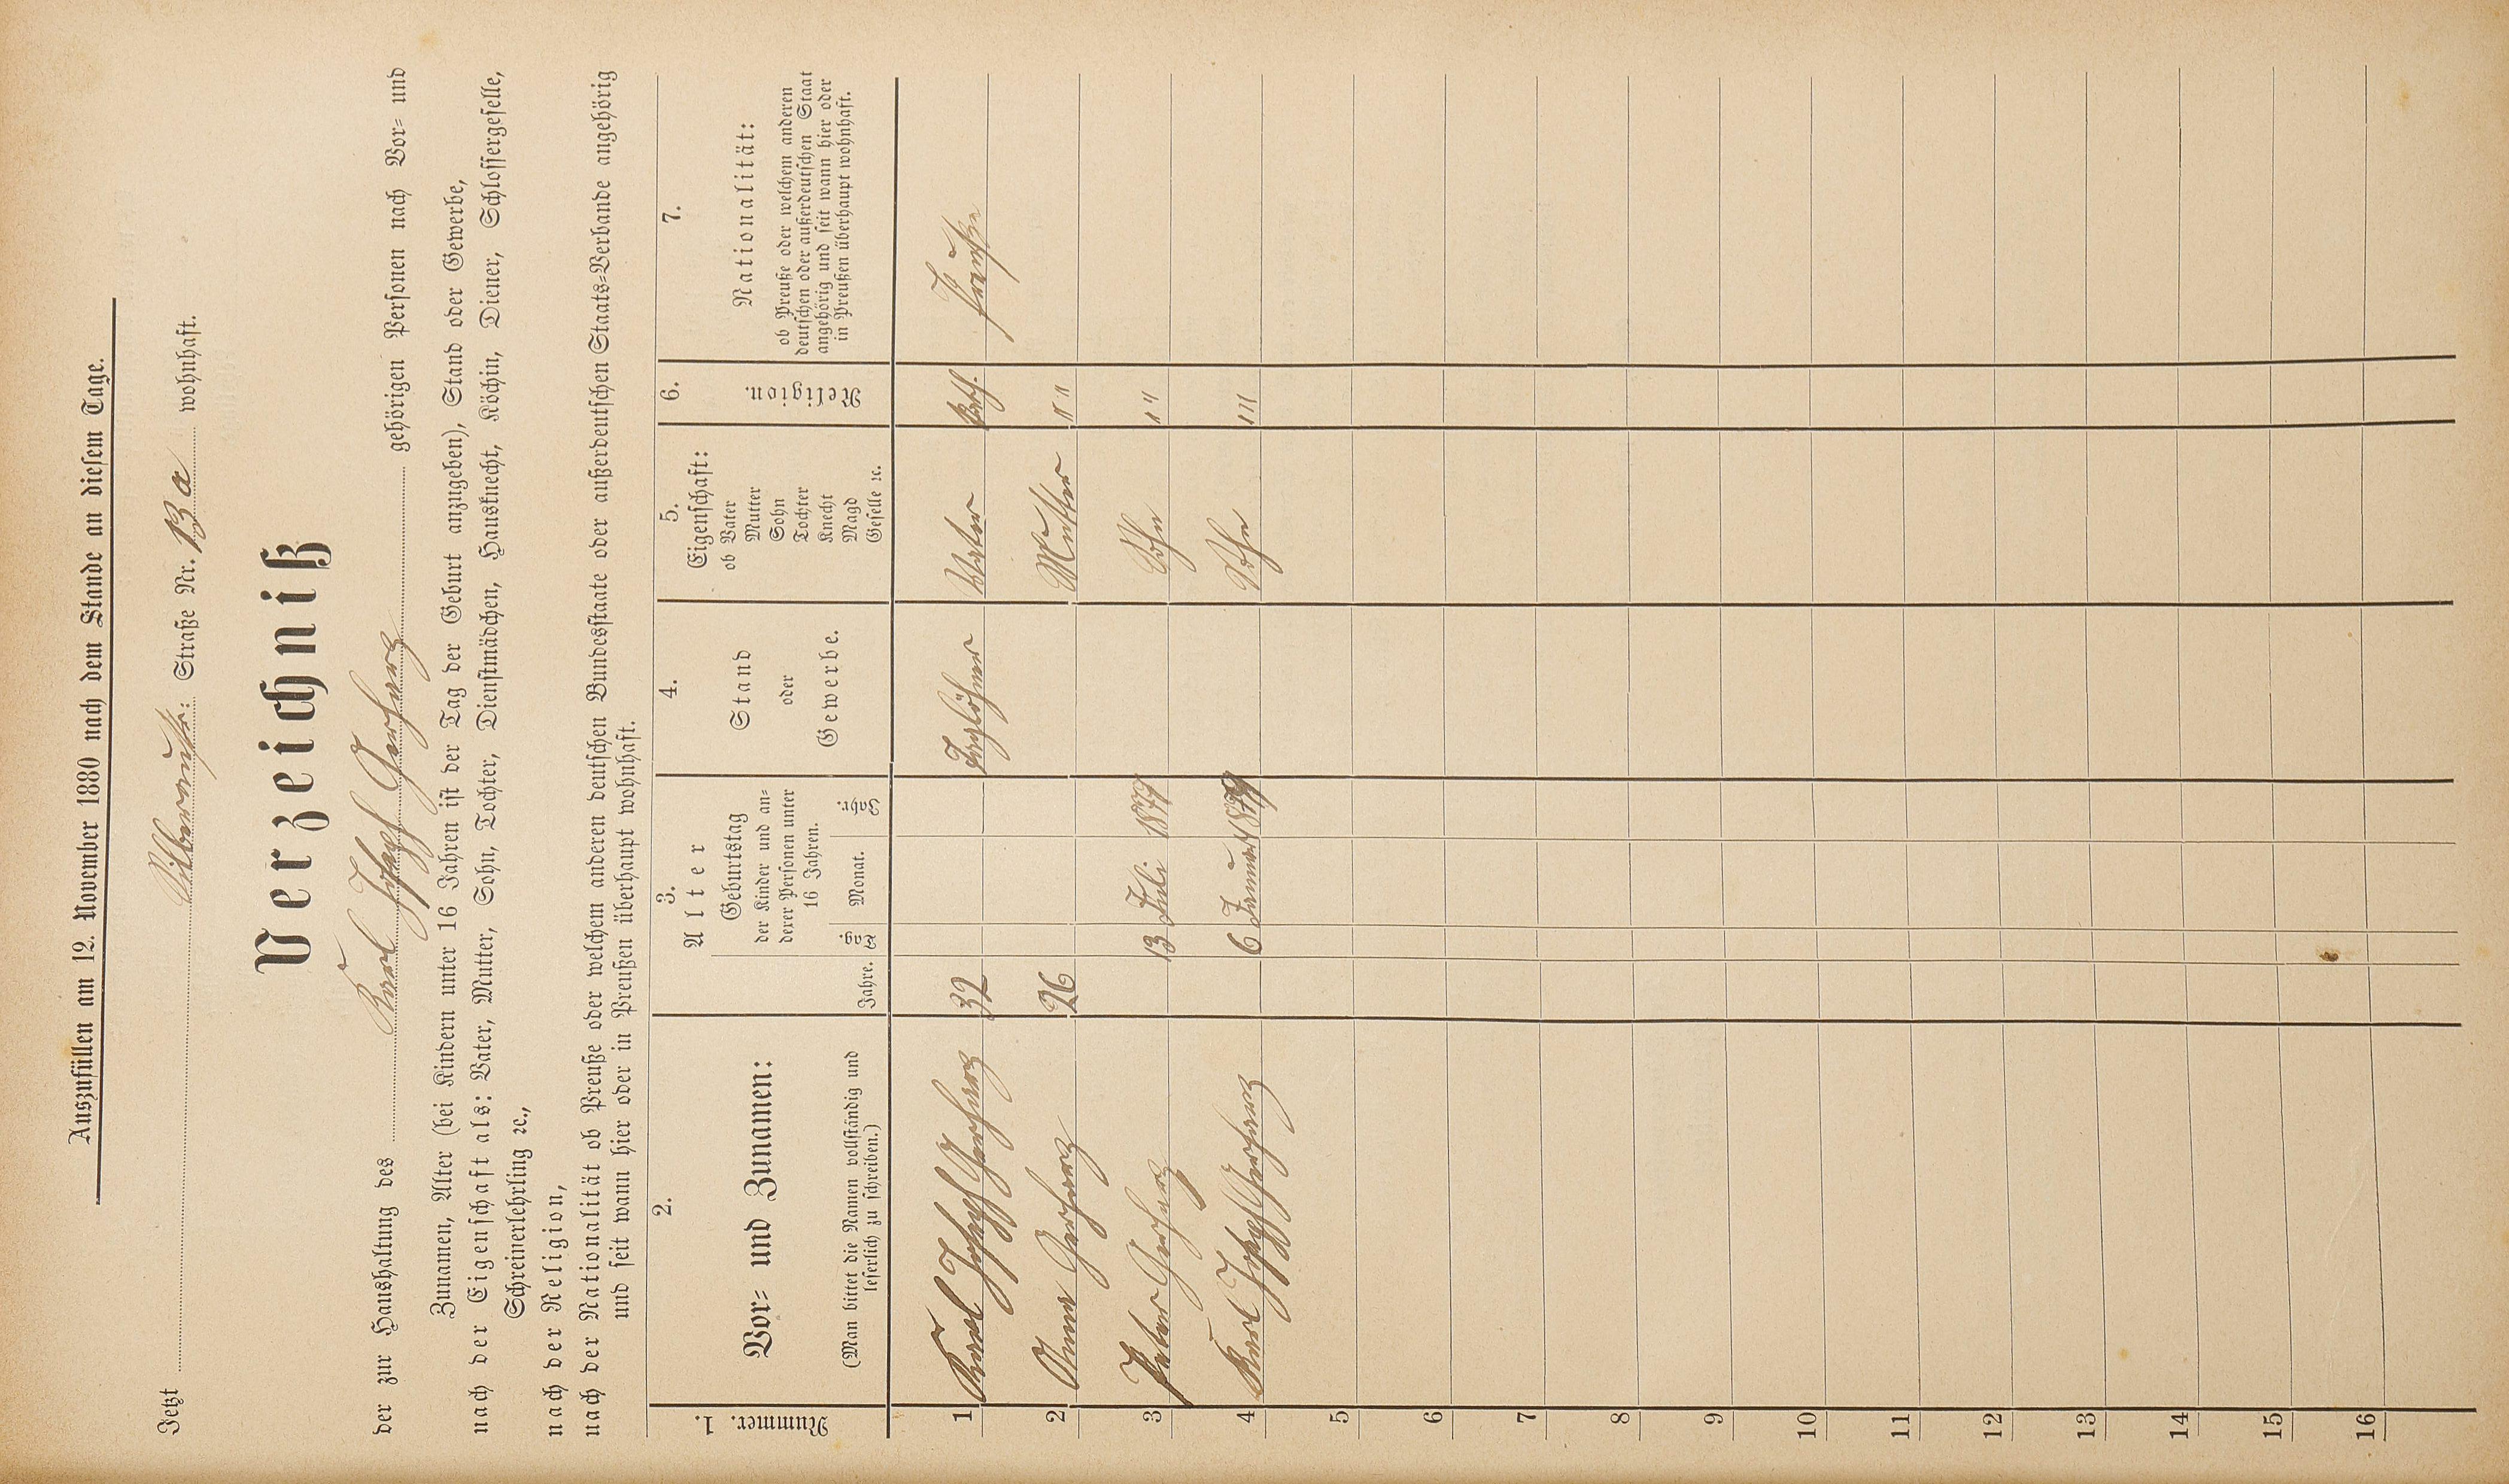 Auszufüllen am 12. November 1880 nach dem Stande an diesem Tage.
Jetzt Straße Nr. 13 a wohnhaft.
Verzeichniß
der zur Haushaltung des Karl Joseph Gerharz gehörigen Personen nach Vor- und
Zunamen, Alter (bei Kindern unter 16 Jahren ist der Tag der Geburt anzugeben), Stand oder Gewerbe,
nach der Eigenschaft als: Vater, Mutter, Sohn, Tochter, Dienstmädchen, Hausknecht, Köchin, Diener, Schlossergeselle,
Schreinerlehrling ꝛc.,
nach der Religion,
nach der Nationalität ob Preuße oder welchem anderen deutschen Bundesstaate oder außerdeutschen Staats-Verbande angehörig
und seit wann hier oder in Preußen überhaupt wohnhaft.
1.
Nummer.
2.
Vor- und Zunamen:
(Man bittet die Namen vollständig und
leserlich zu schreiben.)
3.
Alter
Jahre.
Geburtstag
der Kinder und an-
derer Personen unter
16 Jahren.
Tag
Monat.
Jahr.
4.
Stand
oder
Gewerbe.
5.
Eigenschaft:
ob Vater
Mutter
Sohn
Tochter
Knecht
Magd
Geselle ꝛc.
6.
Religion.
7.
Nationalität:
ob Preuße oder welchem anderen
deutschen oder außerdeutschen Staat
angehörig und seit wann hier oder
in Preußen überhaupt wohnhaft.
1 Karl Joseph Gerharz 32 Taglöhner Vater Kath. Preuße
2 Anna Gerharz 26 Mutter " "
3 Peter Gerharz 13 Juli 1877 Sohn " "
4 Karl Joseph Gerharz 6 Januar 1879 Sohn " "
5
6
7
8
9
10
11
12
13
14
15
16